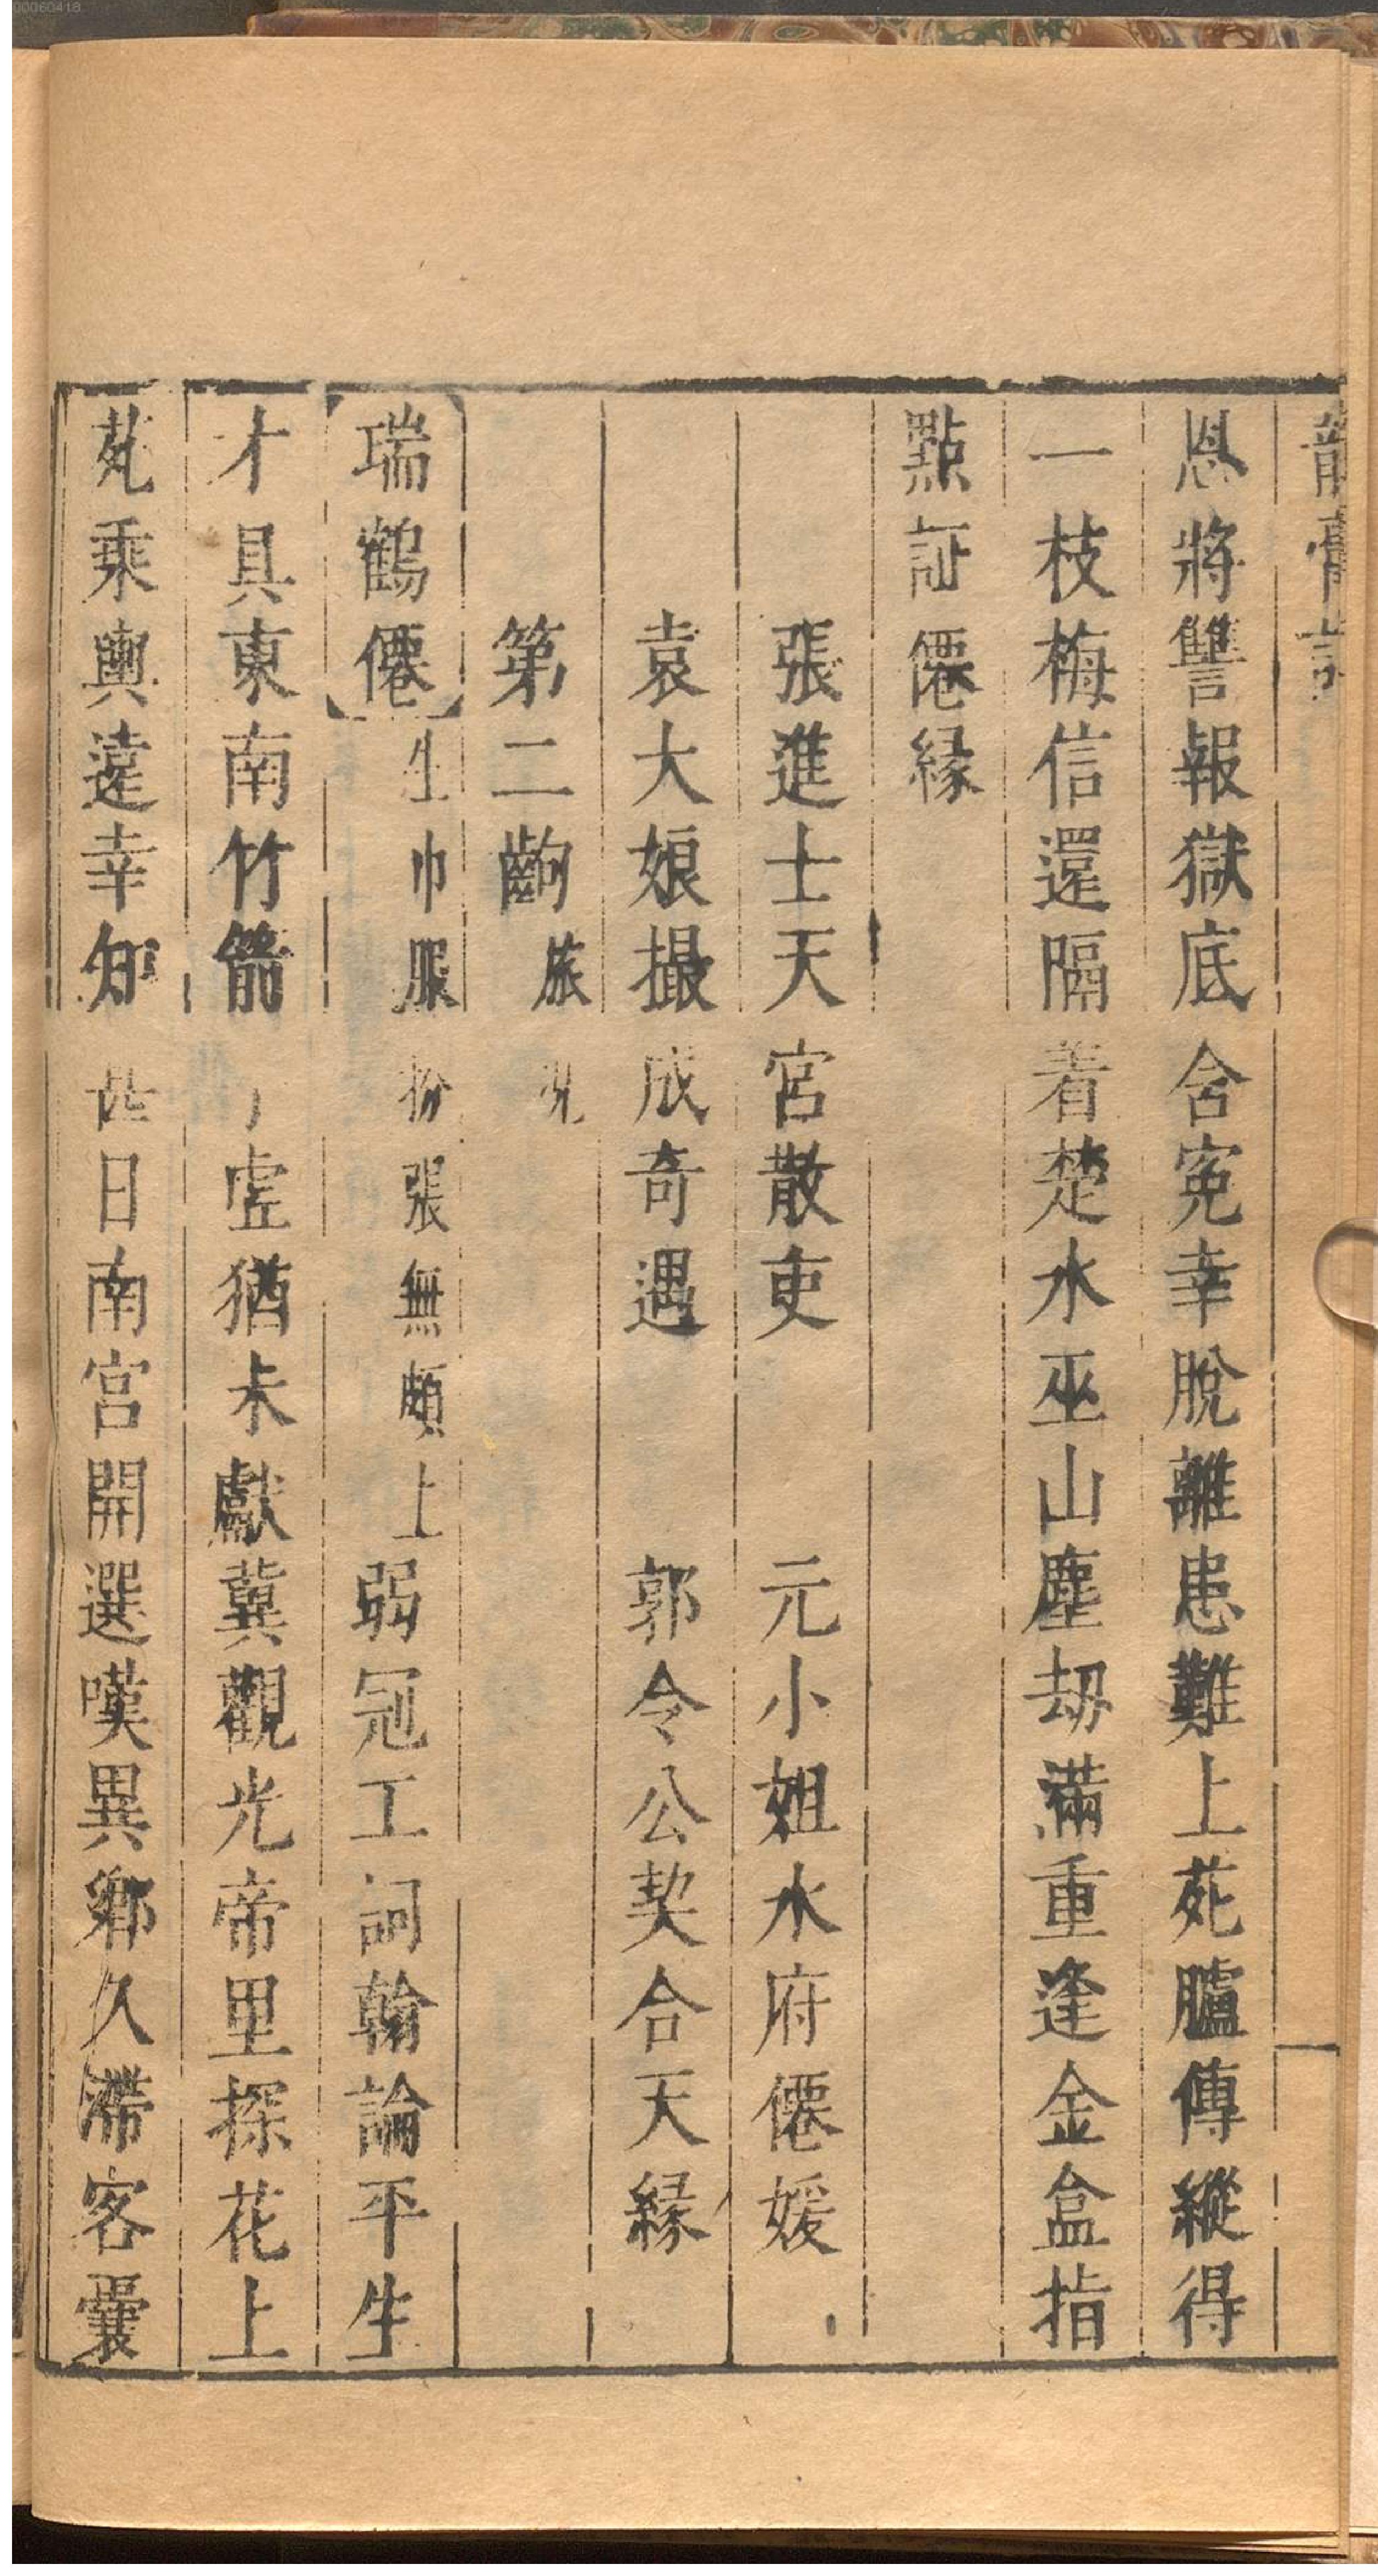 00060418
龍膏記
恩將讐報獄底含寃幸脫離患難上苑臚傳縱得
一枝梅信還隔着楚水巫山塵劫滿重逢金盒指
點証僊緣
張進士天宮散吏　元小姐水府僊媛
袁大娘撮成奇遇　郭令公契合天緣
第二齣　旅況
【瑞鶴僊】生巾服扮張無頗上弱冠工詞翰論平生
才具東南竹箭虛猶未獻冀觀光帝里探花上
苑乘輿遠幸知日南宮開選嘆異鄉久滯客囊